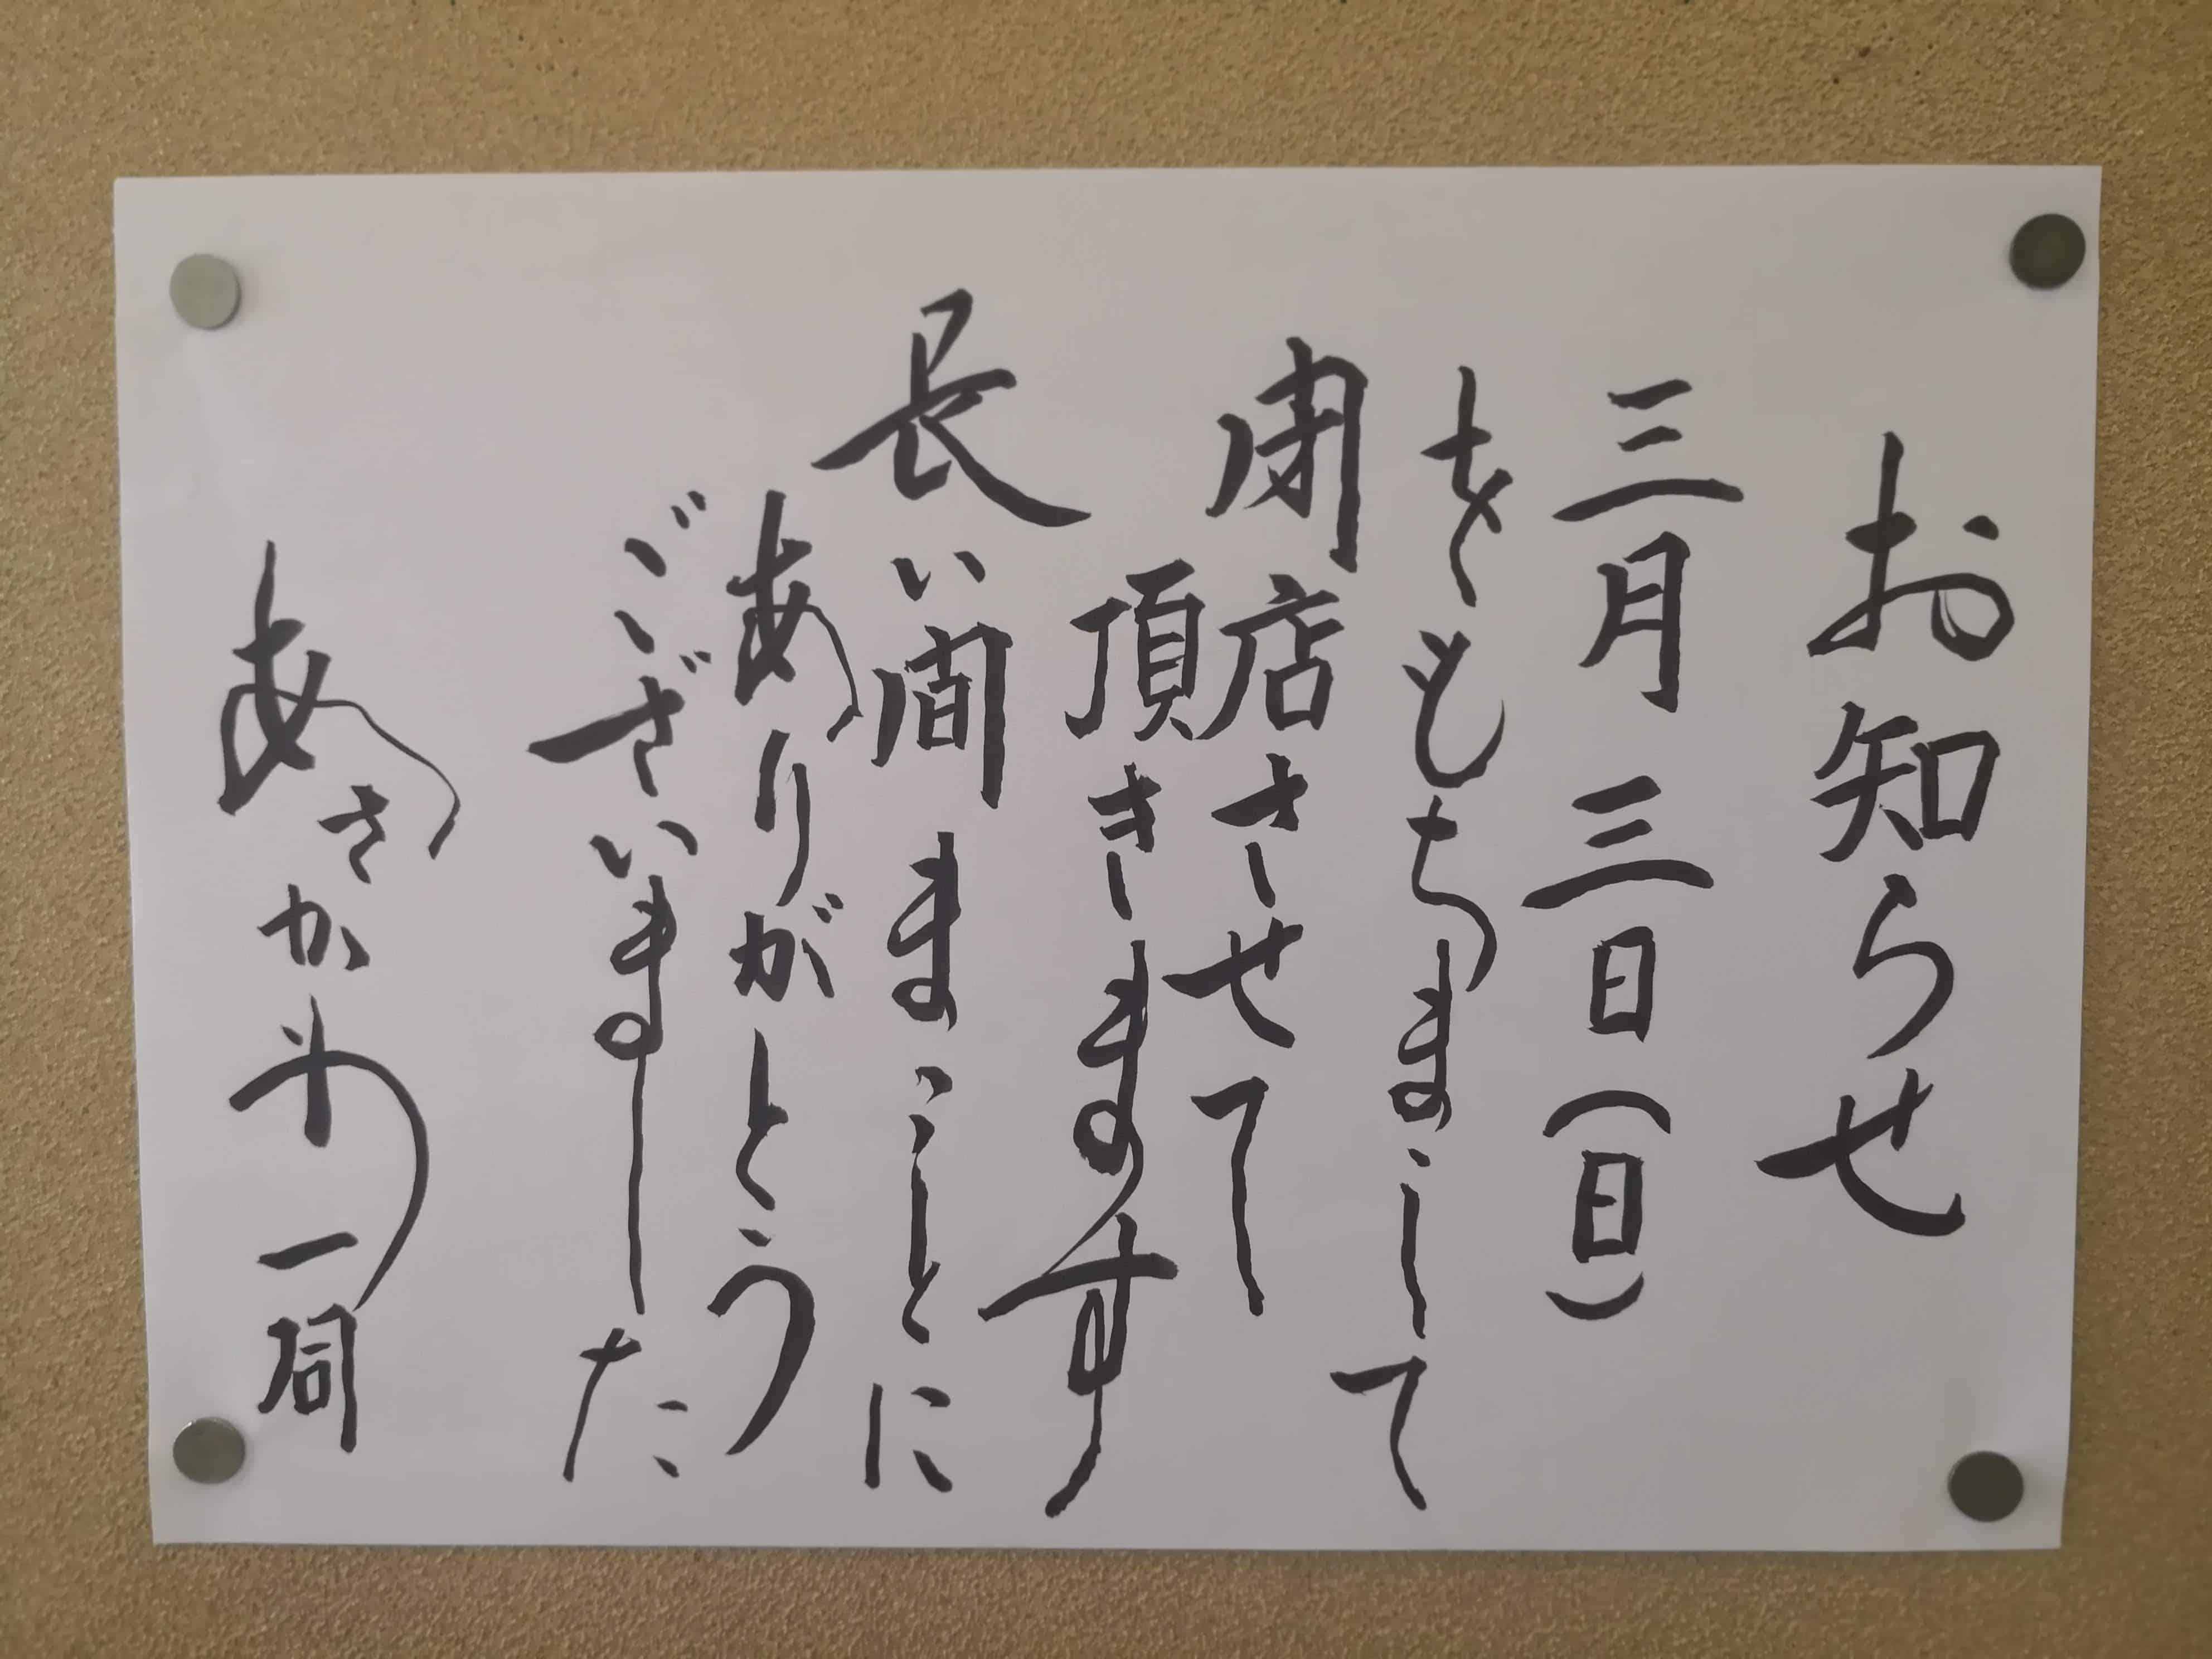 お知らせ
三月三日(日)
をもちまして
閉店させて
頂きます
長い間まことに
ありがとう
ございました
あさかわ一同